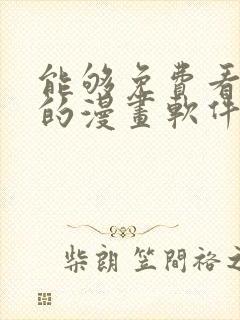 能够免費看
的漫畫軟件
柴朗 笠間裕之